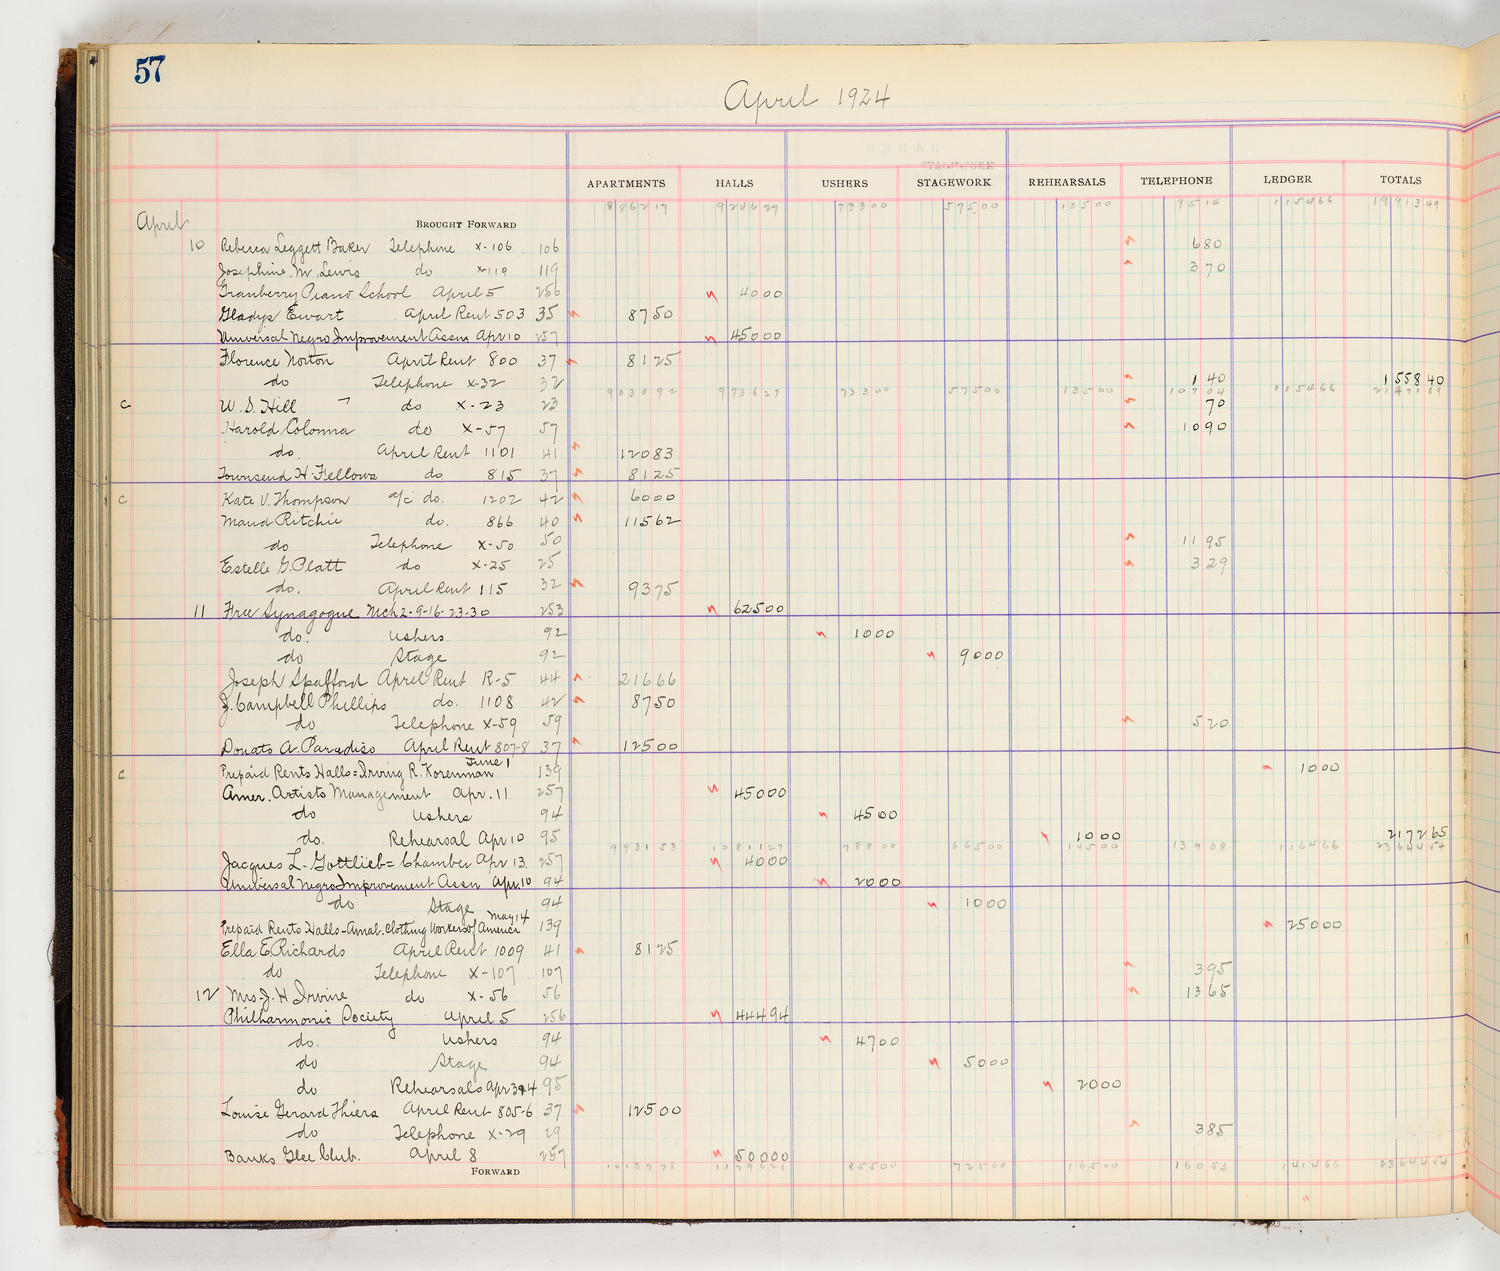 57
April 1924
APARTMENTS HALLS USHERS STAGEWORK REHEARSALS TELEPHONE LEDGER TOTALS
April BROUGHT FORWARD 886217 924627 73300 57500 13500 9514 115466
10 Rebecca Leggett Baker Telephone X-106 106 680
Josephine M. Lewis do X-119 119 370
Granberry Piano School April 5 256 4000
Gladys Ewart April Rent 503 35 8750
Universal Negro Improvement Assn Apr 10 257 45000
Florence Norton April Rent 800 37 8125
do Telephone X-32 32 140 155840
903092 973627 73300 57500 13500 10704 115466
C W. S. Hill do X-23 23 70
Harold Colonna do X-57 57 1090
do. April Rent 1101 41 12083
Townsend H. Fellows do 815 37 8125
C Kate V. Thompson a/c do. 1202 42 6000
Maud Ritchie do. 866 40 11562
do Telephone X-50 50 1195
Estelle G. Platt do X-25 25 329
do. April Rent 115 32 9375
11 Free Synagogue Mch 2-9-16-23-30 253 62500
do. Ushers 92 1000
do Stage 92 9000
Joseph Spafford April Rent R-5 44 21666
J. Campbell Phillips do. 1108 42 8750
do Telephone X-59 59 520
Donato A. Paradiso April Rent 807-8 37 12500
C Prepaid Rents Halls = Irving R. Korenman June 1 139 1000
Amer. Artists Management Apr. 11 257 45000
do Ushers 94 4500
do. Rehearsal Apr 10 95 1000 217265
993153 1081127 78800 66500 14500 13908 116466 2364454
Jacques L. Gottlieb = Chamber Apr 13. 257 4000
Universal Negro Improvement Assn Apr. 10 94 2000
do Stage 94 1000
Prepaid Rents Halls - Amal. Clothing Workers of America May 14 139 25000
Ella E Richards April Rent 1009 41 8125
do Telephone X-107 107 395
12 Mrs. J. H Irvine do X-56 56 1365
Philharmonic Society April 5 256 44494
do. Ushers 94 4700
do Stage 94 5000
do Rehearsals Apr 3&4 95 2000
Louise Gerard Thiers April Rent 805-6 37 12500
do Telephone X-29 29 385
Banks Glee Club. April 8 257 50000
FORWARD 1013778 1179621 85500 72500 16500 16053 141466